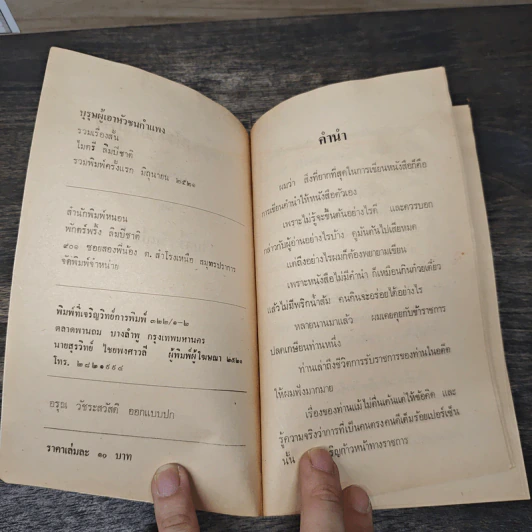 บุรุษผู้เอาหัวชนกำแพง
รวมเรื่องสั้น
ไมตรี ลิมปิชาติ
รวมพิมพ์ครั้งแรก มิถุนายน ๒๕๒๑
สำนักพิมพ์หนอน
พักตร์พริ้ง ลิมปิชาติ
๙๐๑ ซอยสองพี่น้อง ต. สำโรงเหนือ สมุทรปราการ
จัดพิมพ์จำหน่าย
พิมพ์ที่เจริญวิทย์การพิมพ์ ๓๒๒/๑-๒
ตลาดพานถม บางลำพู กรุงเทพมหานคร
นายสุรวิทย์ ไชยพงศาวลี ผู้พิมพ์ผู้โฆษณา ๒๕๒๑
โทร. ๒๘๒๑๙๙๘
อรุณ วัชระสวัสดิ์ ออกแบบปก
ราคาเล่มละ ๑๐ บาท
คำนำ
แมว่า สิ่งที่ยากที่สุดในการเขียนหนังสือก็คือ
การเขียนคำนำให้หนังสือตัวเอง
เพราะไม่รู้จะขึ้นต้นอย่างไรดี และควรบอก
กล่าวกับผู้อ่านอย่างไรบ้าง ดูมันตันไปเสียหมด
แต่ถึงอย่างไรผมก็ต้องพยายามเขียน
เพราะหนังสือไม่มีคำนำ ก็เหมือนกินก๋วยเตี๋ยว
แล้วไม่มีพริกน้ำส้ม คนกินจะอร่อยได้อย่างไร
หลายนานมาแล้ว ผมเคยคุยกับข้าราชการ
ปลดเกษียณท่านหนึ่ง
ท่านเล่าถึงชีวิตการรับราชการของท่านในอดีต
ให้ผมฟังมากมาย
เรื่องของท่านแม้ไม่ตื่นเต้นแต่ได้ข้อคิด และ
รู้ความจริงว่าการที่เป็นคนตรงคนดีเต็มร้อยเปอร์เซ็น
นั้น เจริญก้าวหน้าทางราชการ